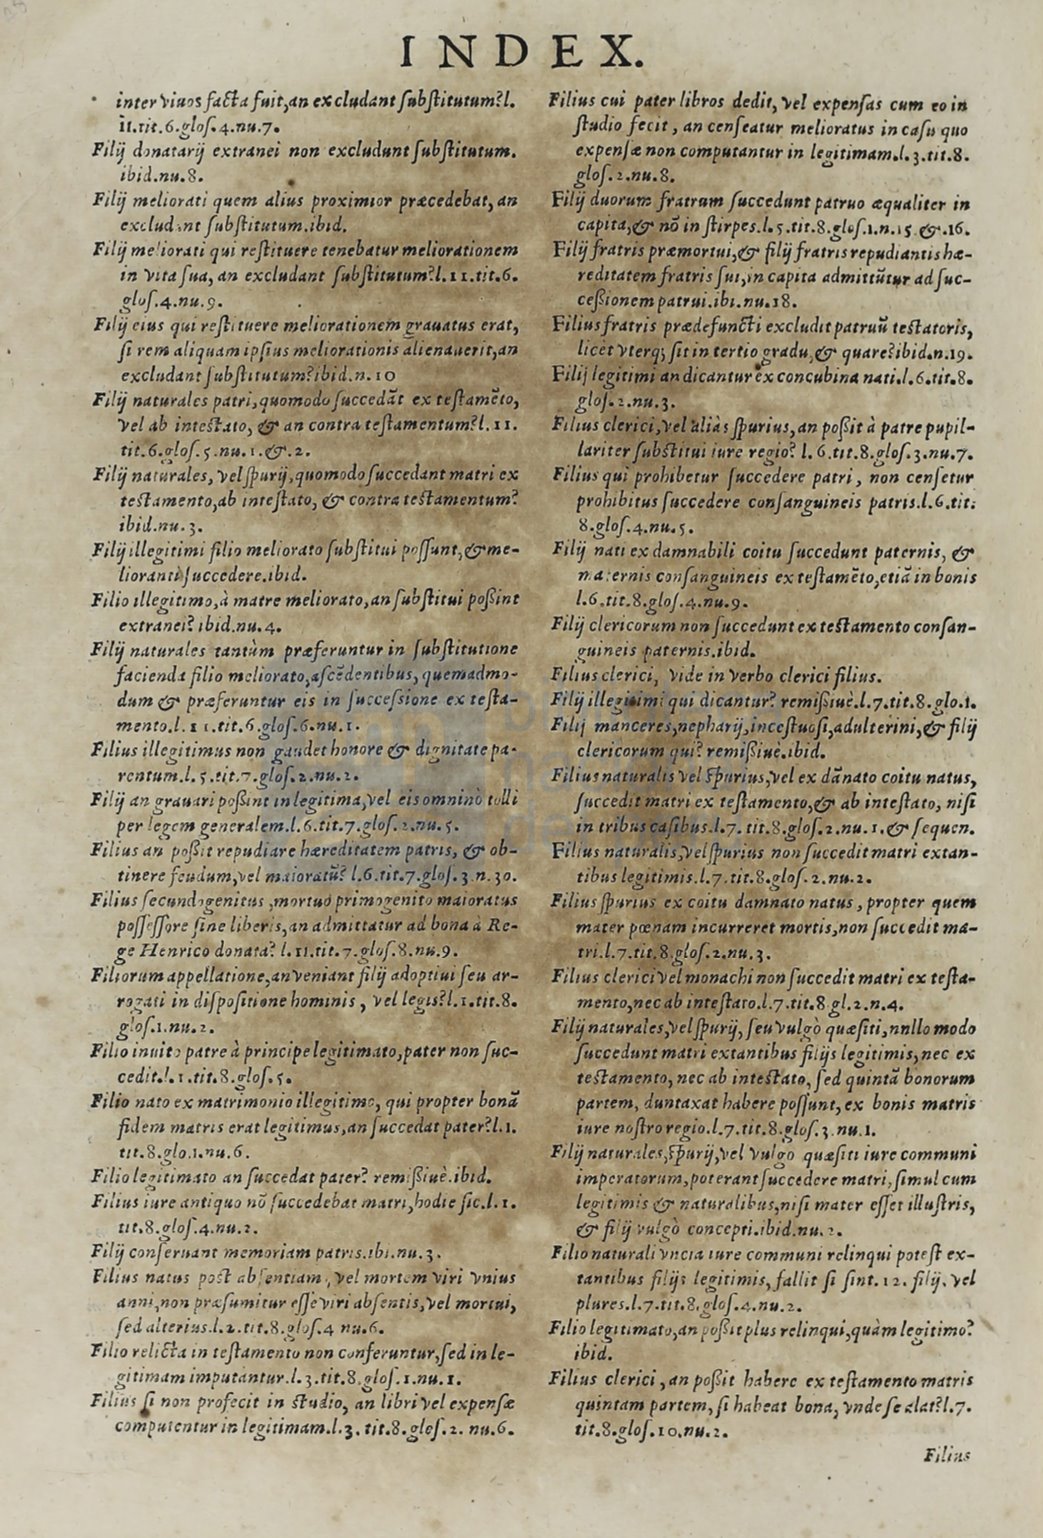 INDEX.
inter viuos facta fuit, an excludant substitutum? l.
11. tit. 6. glos. 4. nu. 7.
Filij donatarij extranei non excludunt substitutum.
ibid. nu. 8.
Filij meliorati quem alius proximior præcedebat, an
excludant substitutum. ibid.
Filij meliorati qui restituere tenebatur meliorationem
in vita sua, an excludant substitutum? l. 11. tit. 6.
glos. 4. nu. 9.
Filij eius qui restituere meliorationem grauatus erat,
si rem aliquam ipsius meliorationis alienauerit, an
excludant substitutum? ibid. n. 10
Filij naturales patri, quomodo succedãt ex testamẽto,
vel ab intestato, & an contra testamentum? l. 11.
tit. 6. glos. 5. nu. 1. &. 2.
Filij naturales, vel spurij, quomodo succedant matri ex
testamento, ab intestato, & contra testamentum?
ibid. nu. 3.
Filij illegitimi filio meliorato substitui possunt, & me-
lioranti succedere. ibid.
Filio illegitimo, à matre meliorato, an substitui possint
extranei? ibid. nu. 4.
Filij naturales tantùm præferuntur in substitutione
facienda filio meliorato, ascẽdentibus, quemadmo-
dum & præferuntur eis in successione ex testa-
mento. l. 11. tit. 6. glos. 6. nu. 1.
Filius illegitimus non gaudet honore & dignitate pa-
rentum. l. 5. tit. 7. glos. 2. nu. 2.
Filij an grauari possint in legitima, vel eis omninò tolli
per legem generalem. l. 6. tit. 7. glos. 2. nu. 5.
Filius an possit repudiare hæreditatem patris, & ob-
tinere feudum, vel maioratũ? l. 6. tit. 7. glos. 3. n. 30.
Filius secundogenitus, mortuo primogenito maioratus
possessore sine liberis, an admittatur ad bona à Re-
ge Henrico donata? l. 11. tit. 7. glos. 8. nu. 9.
Filiorum appellatione, an veniant filij adoptiui seu ar-
rogati in dispositione hominis, vel legis? l. 1. tit. 8.
glos. 1. nu. 2.
Filio inuito patre à principe legitimato, pater non suc-
cedit. l. 1. tit. 8. glos. 5.
Filio nato ex matrimonio illegitimo, qui propter bonã
fidem matris erat legitimus, an succedat pater? l. 1.
tit. 8. glo. 1. nu. 6.
Filio legitimato an succedat pater? remissiuè. ibid.
Filius iure antiquo nõ succedebat matri, hodie sic. l. 1.
tit. 8. glos. 4. nu. 2.
Filij conseruant memoriam patris. ibi. nu. 3.
Filius natus post absentiam, vel mortem viri vnius
anni, non præsumitur esse viri absentis, vel mortui,
sed alterius. l. 2. tit. 8. glos. 4 nu. 6.
Filio relicta in testamento non conferuntur, sed in le-
gitimam imputantur. l. 3. tit. 8. glos. 1. nu. 1.
Filius si non profecit in studio, an libri vel expensæ
computentur in legitimam. l. 3. tit. 8. glos. 2. nu. 6.
Filius cui pater libros dedit, vel expensas cum eo in
studio fecit, an censeatur melioratus in casu quo
expensæ non computantur in legitimam. l. 3. tit. 8.
glos. 2. nu. 8.
Filij duorum fratrum succedunt patruo æqualiter in
capita, & nõ in stirpes. l. 5. tit. 8. glos. 1. n. 15 &. 16.
Filij fratris præmortui, & filij fratris repudiantis hæ-
reditatem fratris sui, in capita admittũtur ad suc-
cessionem patrui. ibi. nu. 18.
Filius fratris prædefuncti excludit patruũ testatoris,
licèt vterq; sit in tertio gradu, & quare? ibid. n. 19.
Filij legitimi an dicantur ex concubina nati. l. 6. tit. 8.
glos. 2. nu. 3.
Filius clerici, vel aliàs spurius, an possit à patre pupil-
lariter substitui iure regio? l. 6. tit. 8. glos. 3. nu. 7.
Filius qui prohibetur succedere patri, non censetur
prohibitus succedere consanguineis patris. l. 6. tit.
8. glos. 4. nu. 5.
Filij nati ex damnabili coitu succedunt paternis, &
maternis consanguineis ex testamẽto, etiã in bonis
l. 6. tit. 8. glos. 4. nu. 9.
Filij clericorum non succedunt ex testamento consan-
guineis paternis. ibid.
Filius clerici, vide in verbo clerici filius.
Filij illegitimi qui dicantur? remissiuè. l. 7. tit. 8. glo. 1.
Filij manceres, nepharij, incestuosi, adulterini, & filij
clericorum qui? remissiuè. ibid.
Filius naturalis vel spurius, vel ex dãnato coitu natus,
succedit matri ex testamento, & ab intestato, nisi
in tribus casibus. l. 7. tit. 8. glos. 2. nu. 1. & sequen.
Filius naturalis, vel spurius non succedit matri extan-
tibus legitimis. l. 7. tit. 8. glos. 2. nu. 2.
Filius spurius ex coitu damnato natus, propter quem
mater pœnam incurreret mortis, non succedit ma-
tri. l. 7. tit. 8. glos. 2. nu. 3.
Filius clerici vel monachi non succedit matri ex testa-
mento, nec ab intestato. l. 7. tit. 8 gl. 2. n. 4.
Filij naturales, vel spurij, seu vulgò quæsiti, nullo modo
succedunt matri extantibus filijs legitimis, nec ex
testamento, nec ab intestato, sed quintã bonorum
partem, duntaxat habere possunt, ex bonis matris
iure nostro regio. l. 7. tit. 8. glos. 3. nu. 1.
Filij naturales, spurij, vel vulgo quæsiti iure communi
imperatorum, poterant succedere matri, simul cum
legitimis & naturalibus, nisi mater esset illustris,
& filij vulgò concepti. ibid. nu. 2.
Filio naturali vncia iure communi relinqui potest ex-
tantibus filijs legitimis, fallit si sint. 12. filij, vel
plures. l. 7. tit. 8. glos. 4. nu. 2.
Filio legitimato, an possit plus relinqui, quàm legitimo?
ibid.
Filius clerici, an possit habere ex testamento matris
quintam partem, si habeat bona, vnde se alat? l. 7.
tit. 8. glos. 10. nu. 2.
Filius